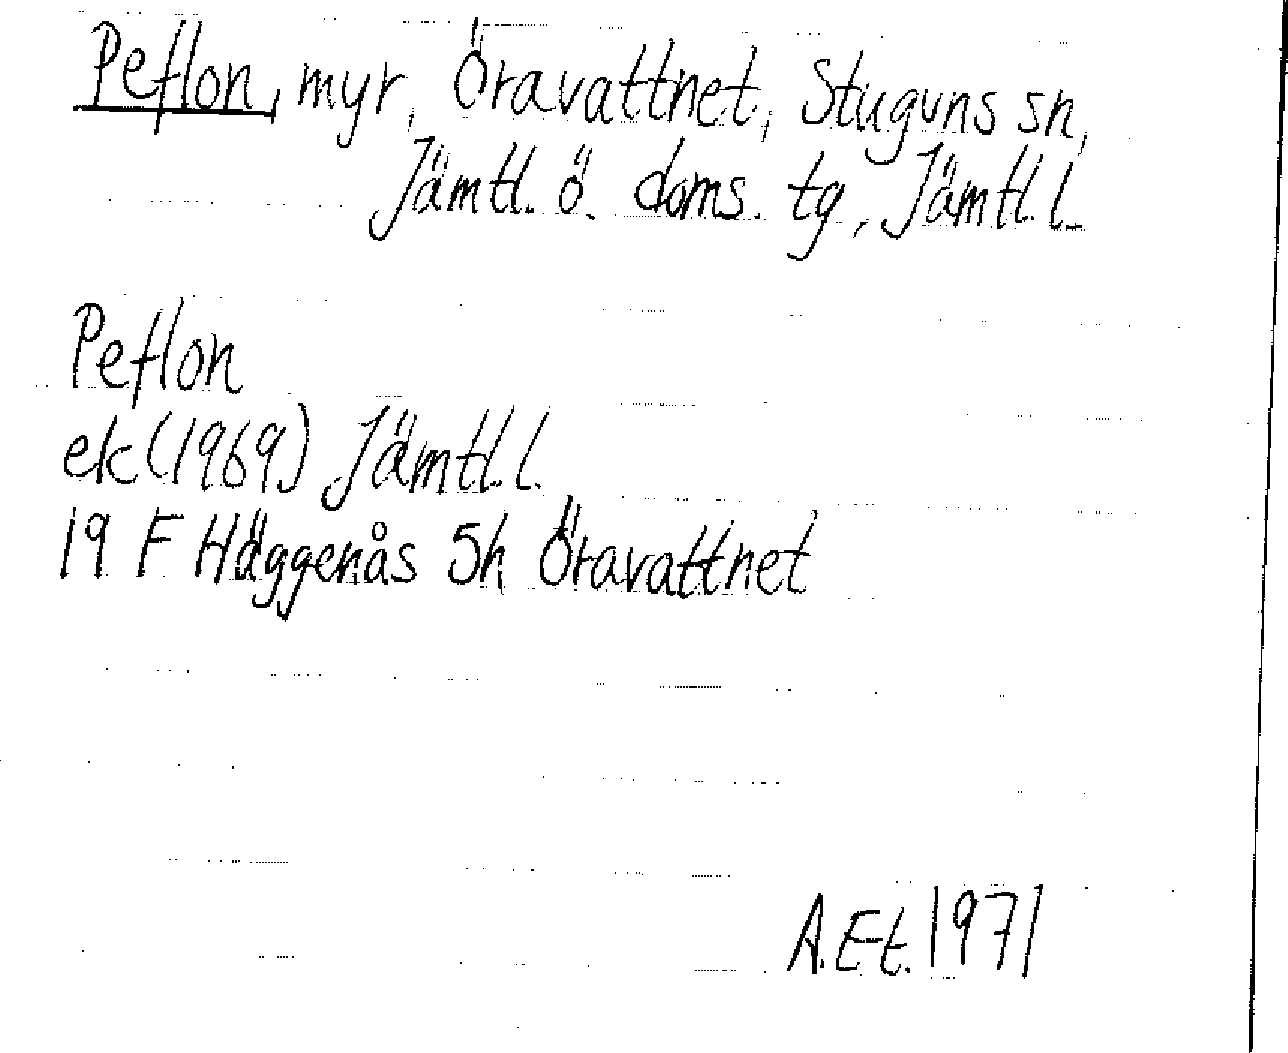 Peflon, myr, Öravattnet, Stuguns sn,
Jämtl. ö. doms. tg, Jämtl. l.
Peflon
ek (1969) Jämtl. l.
19 F Häggenås 5h Öravattnet
A.E-t. 1971